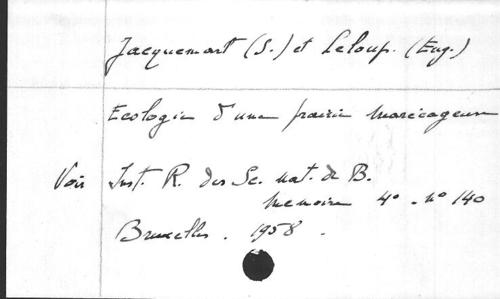 Jacquemart (S.) et Leloup. (Eug.)
Ecologie d'une prairie marécageuse
Voir Inst. R. des Sc. nat. de B.
Memoire 4° - n° 140
Bruxelles. 1958.